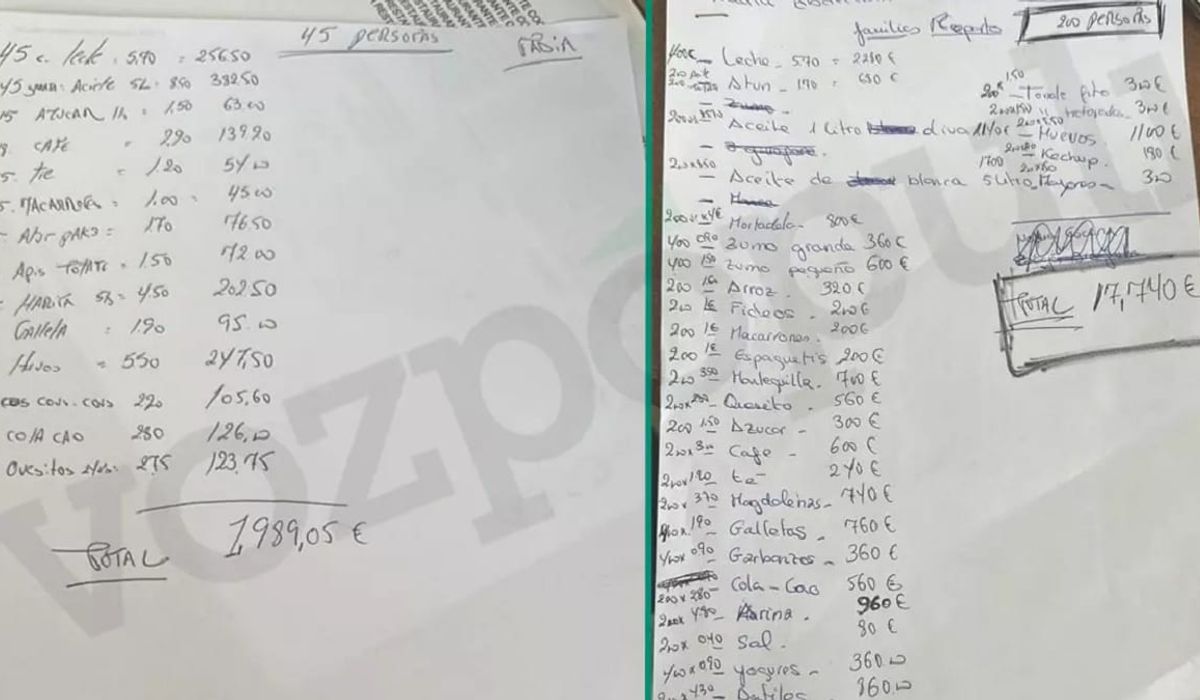 45 PERSONAS
FADIA
45 c. leche : 5,70 = 256,50
Aceite 5L : 8,50 38250
AZUCAR 1k = 1,50 63,00
CAFE = 2,90 139,20
Te = 1,20 54,00
MACARRONES = 1.00 = 45,00
= 1,70 76,50
TOMATE = 1.50 72,00
HARINA 5k = 4,50 202,50
GALLETA = 1,90 95,00
Huevos = 5,50 247,50
COUS COUS 2,20 105,60
COLA CAO 280 126,00
Quesitos 2,75 123,75
TOTAL 1,989,05 €
familias Reparto
200 PERSONAS
400€ - Leche - 5,70 = 2280 €
- Atun - 1,70 = 680 €
- Aceite 1 Litro oliva
- Aceite de blanca 5 Litro
200 x 4€ Mortadela - 800€
400 0,90 Zumo grande 360 €
400 1,50 Zumo pequeño 600 €
200 1,60 Arroz . 320 €
200 1€ Fideos . 200€
200 1€ Macarrones . 200€
200 1€ Espaguetis 200€
200 3,50 Mantequilla . 700 €
200x 2,80 - Quesito . 560 €
200 1,50 Azucar - 300 €
200x 3,00 - Cafe - 600 €
200x 1,20 - te - 240 €
200x 3,70 - Magdalenas - 740 €
400x 1,90 - Galletas - 760 €
400x 0,90 - Garbanzos - 360 €
200x 2,80 - Cola-Cao 560 €
200x 4,80 - Harina . 960 €
200x 0,40 Sal . 80 €
400x 0,90 - yogures - 360,00
200x 4,30 - Datiles 860,00
1,50
200x - Tomate frito 300 €
200x1,50 300 €
200x5,50 - Huevos 1100 €
- Kechup . 180 €
TOTAL 17,740 €
vozpópuli